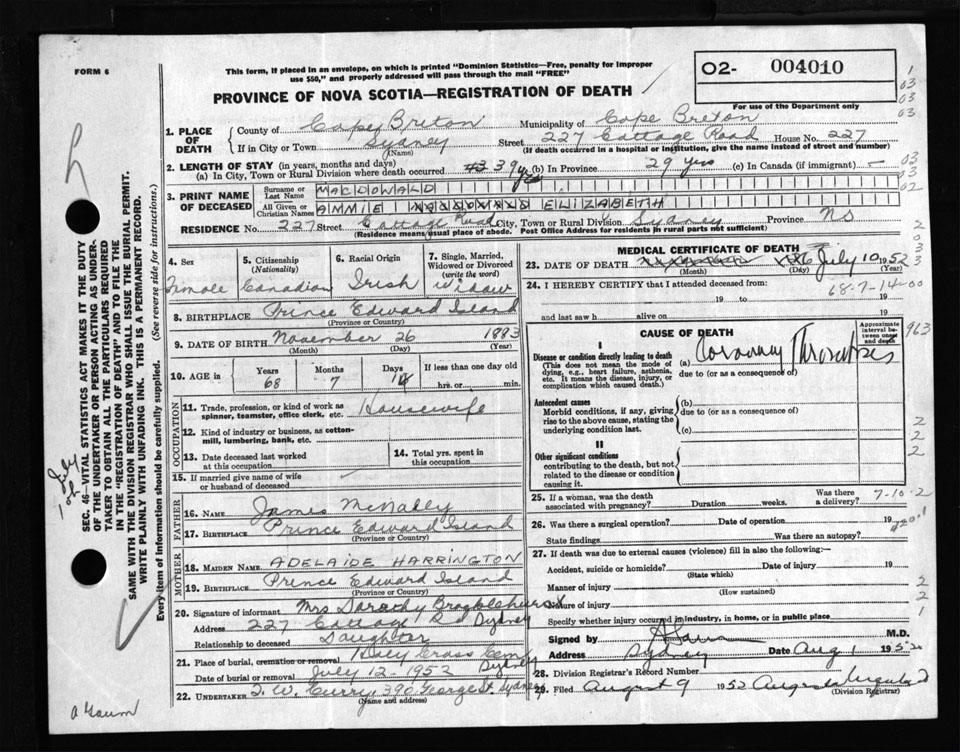 FORM 6
This form, if placed in an envelope, on which is printed "Dominion Statistics—Free, penalty for improper
use $50," and properly addressed will pass through the mail "FREE"
02- 004010
For use of the Department only
PROVINCE OF NOVA SCOTIA—REGISTRATION OF DEATH
1. PLACE OF DEATH
County of Cape Breton Municipality of Cape Breton
If in City or Town Sydney (Name) Street 227 Cottage Road House No. 227
(If death occurred in a hospital or institution, give the name instead of street and number)
2. LENGTH OF STAY (in years, months and days)
(a) In City, Town or Rural Division where death occurred 39 yrs (b) In Province 29 yrs (c) In Canada (if immigrant) —
3. PRINT NAME OF DECEASED
Surname or Last Name MACDONALD
All Given or Christian Names ANNIE ELIZABETH
RESIDENCE No. 227 Street Cottage Road City, Town or Rural Division Sydney Province NS
(Residence means usual place of abode. Post Office Address for residents in rural parts not sufficient)
4. Sex Female
5. Citizenship (Nationality) Canadian
6. Racial Origin Irish
7. Single, Married, Widowed or Divorced (write the word) Widow
8. BIRTHPLACE Prince Edward Island
(Province or Country)
9. DATE OF BIRTH November 26 1883
(Month) (Day) (Year)
10. AGE in Years 68 Months 7 Days If less than one day old hrs. or min.
OCCUPATION
11. Trade, profession, or kind of work as spinner, teamster, office clerk. etc. Housewife
12. Kind of industry or business, as cotton-mill, lumbering, bank, etc.
13. Date deceased last worked at this occupation
14. Total yrs. spent in this occupation
15. If married give name of wife or husband of deceased
FATHER
16. NAME James McNally
17. BIRTHPLACE Prince Edward Island
(Province or Country)
MOTHER
18. MAIDEN NAME ADELAIDE HARRINGTON
19. BIRTHPLACE Prince Edward Island
(Province or Country)
20. Signature of informant Mrs Dorothy
Address 227 Cottage Rd Sydney
Relationship to deceased Daughter
21. Place of burial, cremation or removal Holy Cross Cem Sydney
Date of burial or removal July 12 - 1952
22. UNDERTAKER T. W. Curry, 390 George St Sydney
(Name and address)
MEDICAL CERTIFICATE OF DEATH
23. DATE OF DEATH July 10 1952
(Month) (Day) (Year)
24. I HEREBY CERTIFY that I attended deceased from:
68-7-14-00
19 to 19
and last saw h alive on 19
CAUSE OF DEATH
Approximate interval between onset and death
I
Disease or condition directly leading to death (a) Coronary Thrombosis
(This does not mean the mode of dying, e.g., heart failure, asthenia, etc. It means the disease, injury, or complication which caused death.)
due to (or as a consequence of)
Antecedent causes
Morbid conditions, if any, giving rise to the above cause, stating the underlying condition last.
(b)
due to (or as a consequence of)
(c)
II
Other significant conditions
contributing to the death, but not related to the disease or condition causing it.
25. If a woman, was the death associated with pregnancy? Duration weeks. Was there a delivery? 7-10-2
26. Was there a surgical operation? Date of operation 19
State findings Was there an autopsy?
27. If death was due to external causes (violence) fill in also the following:—
Accident, suicide or homicide? Date of injury 19
(State which)
Manner of injury
(How sustained)
Nature of injury
Specify whether injury occurred in industry, in home, or in public place
Signed by M.D.
Address Sydney Date Aug 1 1952
28. Division Registrar's Record Number
29. Filed August 9 1952
(Division Registrar)
SEC. 46—VITAL STATISTICS ACT MAKES IT THE DUTY
OF THE UNDERTAKER OR PERSON ACTING AS UNDER-
TAKER TO OBTAIN ALL THE PARTICULARS REQUIRED
IN THE "REGISTRATION OF DEATH" AND TO FILE THE
SAME WITH THE DIVISION REGISTRAR WHO SHALL ISSUE THE BURIAL PERMIT.
WRITE PLAINLY WITH UNFADING INK. THIS IS A PERMANENT RECORD.
Every item of information should be carefully supplied. (See reverse side for instructions.)
963